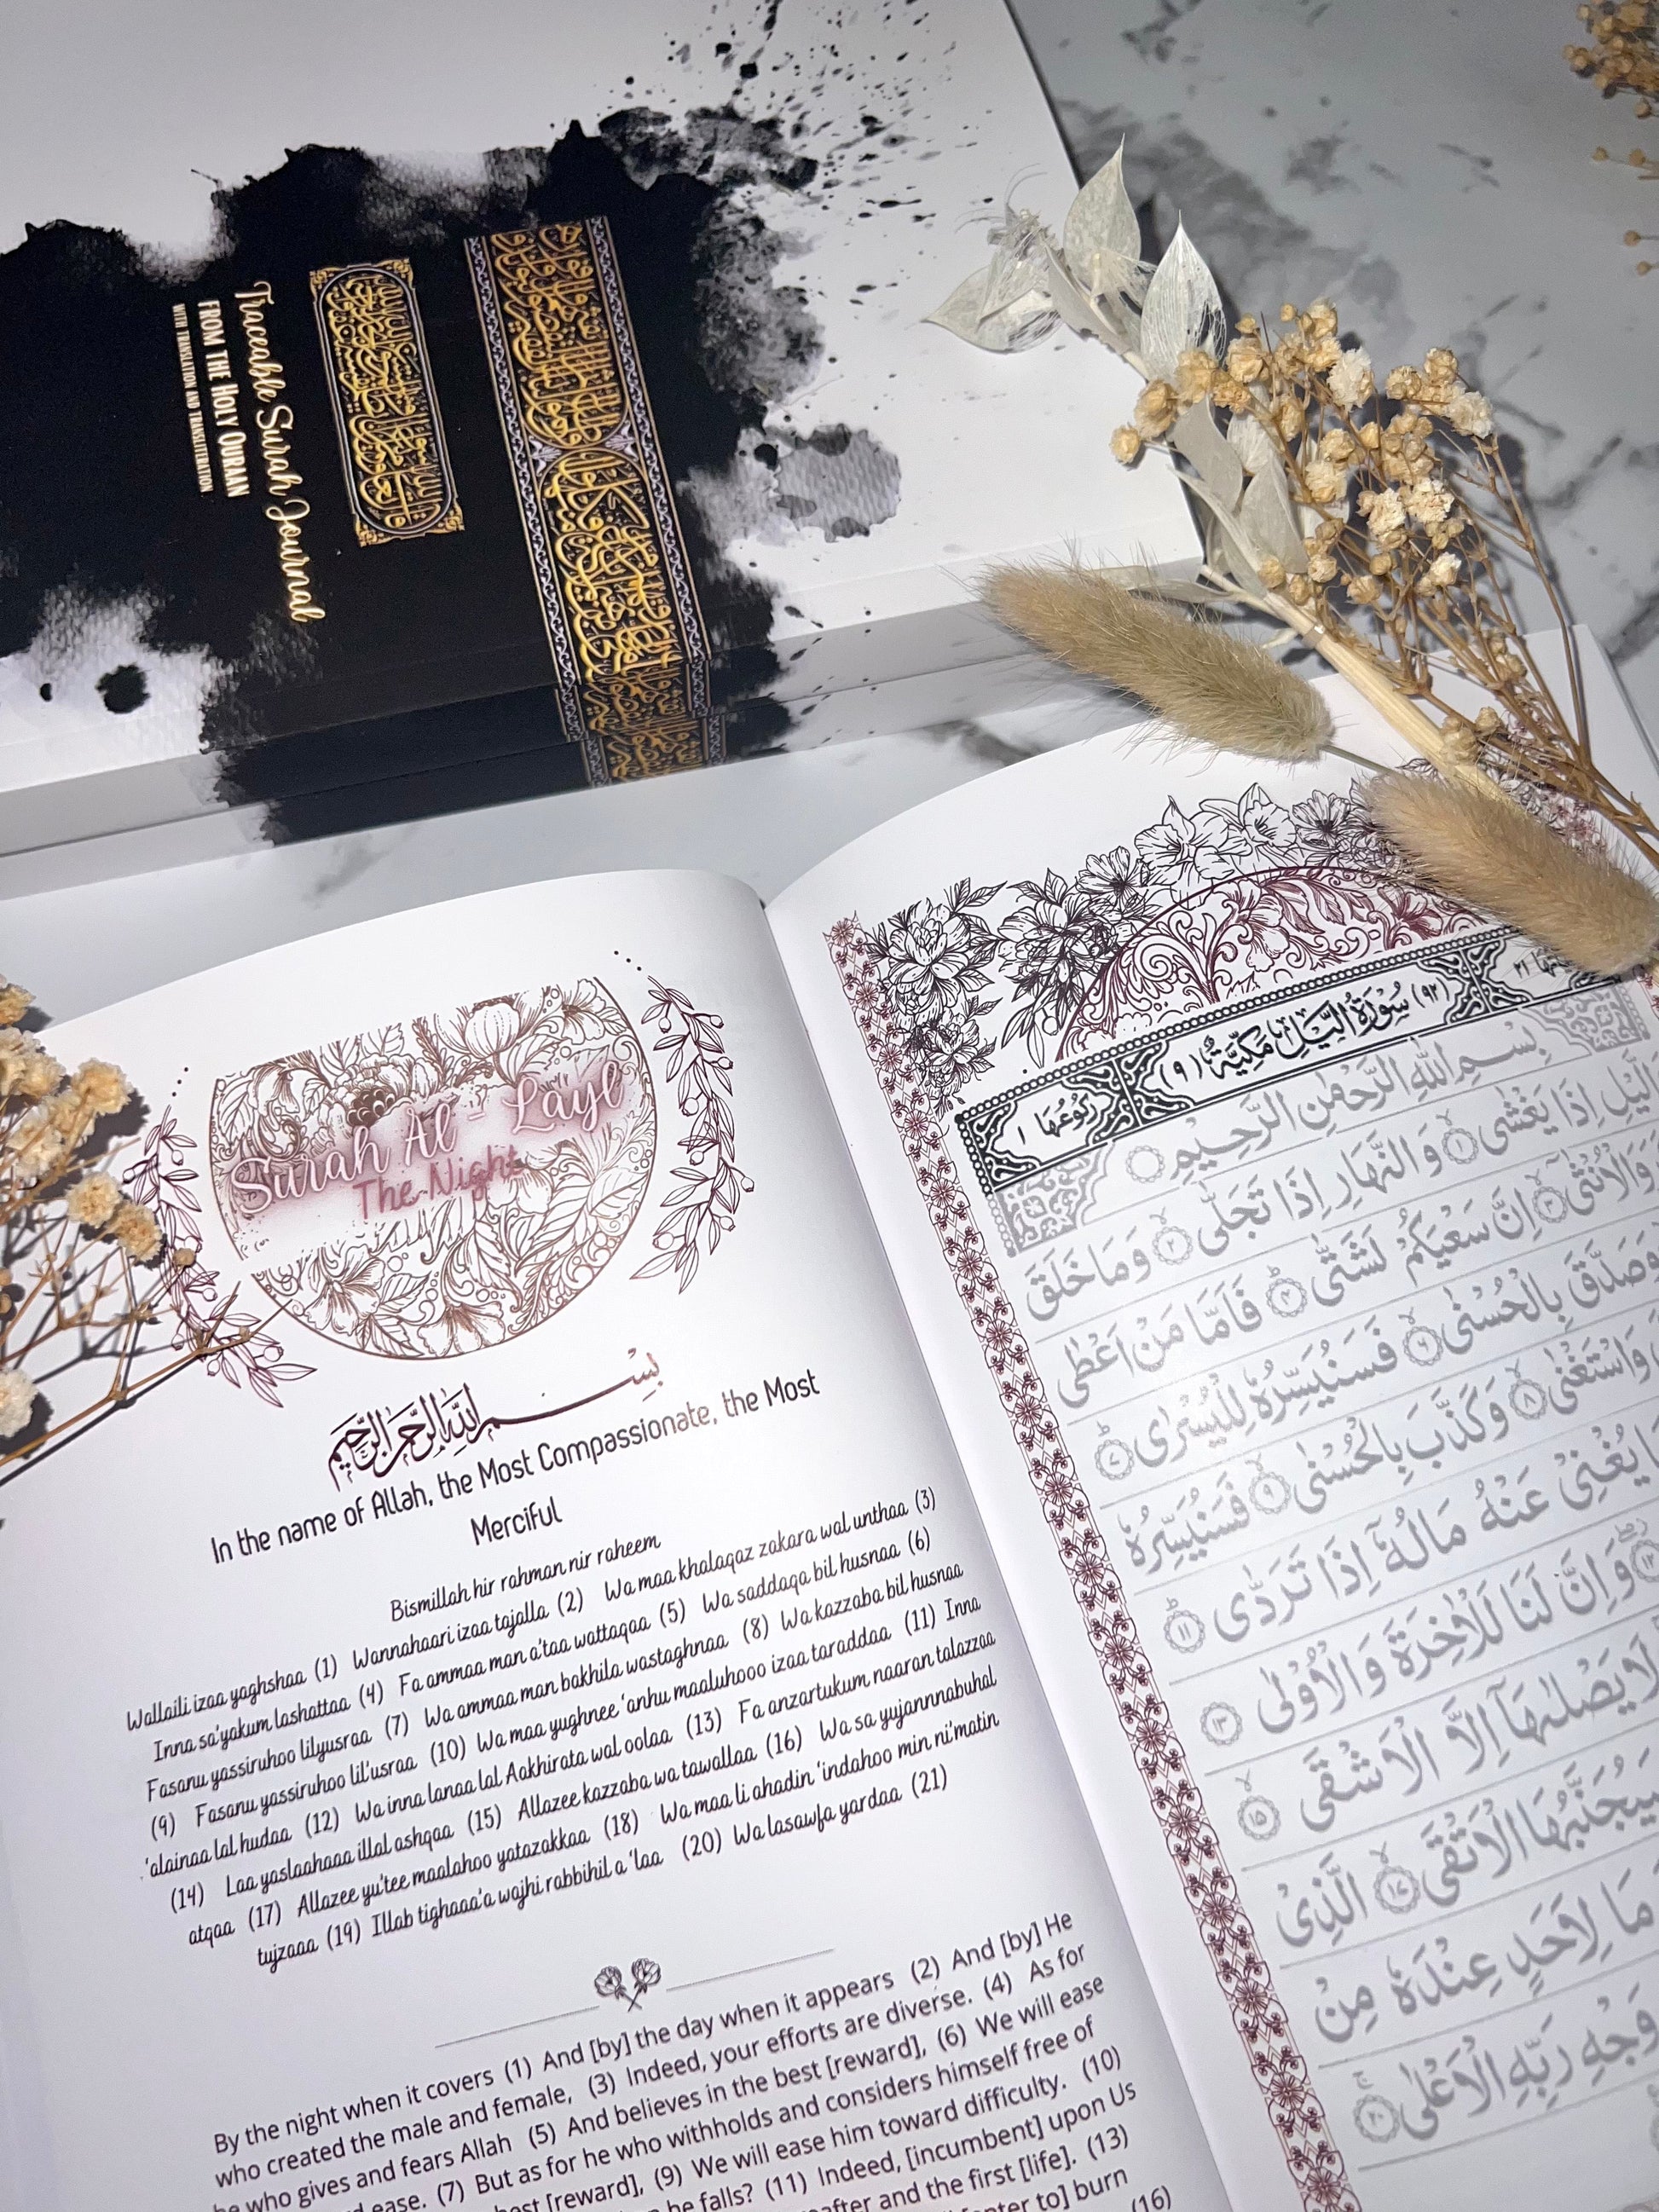 Traceable Surah Journal
FROM THE HOLY QURAAN
WITH TRANSLATION AND TRANSLITERATION
Surah Al - Layl
The Night
بِسْمِ اللَّهِ الرَّحْمَنِ الرَّحِيمِ
In the name of Allah, the Most Compassionate, the Most
Merciful
Bismillah hir rahman nir raheem
Wallaili izaa yaghshaa (1) Wannahaari izaa tajalla (2) Wa maa khalaqaz zakara wal unthaa (3)
Inna sa'yakum lashattaa (4) Fa ammaa man a'taa wattaqaa (5) Wa saddaqa bil husnaa (6)
Fasanu yassiruhoo lilyusraa (7) Wa ammaa man bakhila wastaghnaa (8) Wa kazzaba bil husnaa
(9) Fasanu yassiruhoo lil'usraa (10) Wa maa yughnee 'anhu maaluhooo izaa taraddaa (11) Inna
'alainaa lal hudaa (12) Wa inna lanaa lal Aakhirata wal oolaa (13) Fa anzartukum naaran talazzaa
(14) Laa yaslaahaaa illal ashqaa (15) Allazee kazzaba wa tawallaa (16) Wa sa yujannnabuhal
atqaa (17) Allazee yu'tee maalahoo yatazakkaa (18) Wa maa li ahadin 'indahoo min ni'matin
tujzaaa (19) Illab tighaaa'a wajhi rabbihil a 'laa (20) Wa lasawfa yardaa (21)
By the night when it covers (1) And [by] the day when it appears (2) And [by] He
who created the male and female, (3) Indeed, your efforts are diverse. (4) As for
he who gives and fears Allah (5) And believes in the best [reward], (6) We will ease
ease. (7) But as for he who withholds and considers himself free of
[reward], (9) We will ease him toward difficulty. (10)
he falls? (11) Indeed, [incumbent] upon Us
and the first [life]. (13)
to] burn
(16)
رُكُوعُهَا ١ (٩٢) سُوْرَةُ الَّيْلِ مَكِّيَّةٌ (٩)
بِسْمِ اللهِ الرَّحْمٰنِ الرَّحِيْمِ
الَّيْلِ اِذَا يَغْشٰى ١ وَالنَّهَارِ اِذَا تَجَلّٰى ٢ وَمَا خَلَقَ
وَالْاُنْثٰى ٣ اِنَّ سَعْيَكُمْ لَشَتّٰى ٤ فَاَمَّا مَنْ اَعْطٰى
وَصَدَّقَ بِالْحُسْنٰى ٦ فَسَنُيَسِّرُهٗ لِلْيُسْرٰى ٧
وَاسْتَغْنٰى ٨ وَكَذَّبَ بِالْحُسْنٰى ٩ فَسَنُيَسِّرُهٗ
يُغْنِيْ عَنْهُ مَالُهٗٓ اِذَا تَرَدّٰى ١١
١٢ وَاِنَّ لَنَا لَلْاٰخِرَةَ وَالْاُوْلٰى ١٣
لَا يَصْلٰىهَآ اِلَّا الْاَشْقَى ١٥
سَيُجَنَّبُهَا الْاَتْقَى ١٧ الَّذِيْ
مَا لِاَحَدٍ عِنْدَهٗ مِنْ
وَجْهِ رَبِّهِ الْاَعْلٰى ٢٠